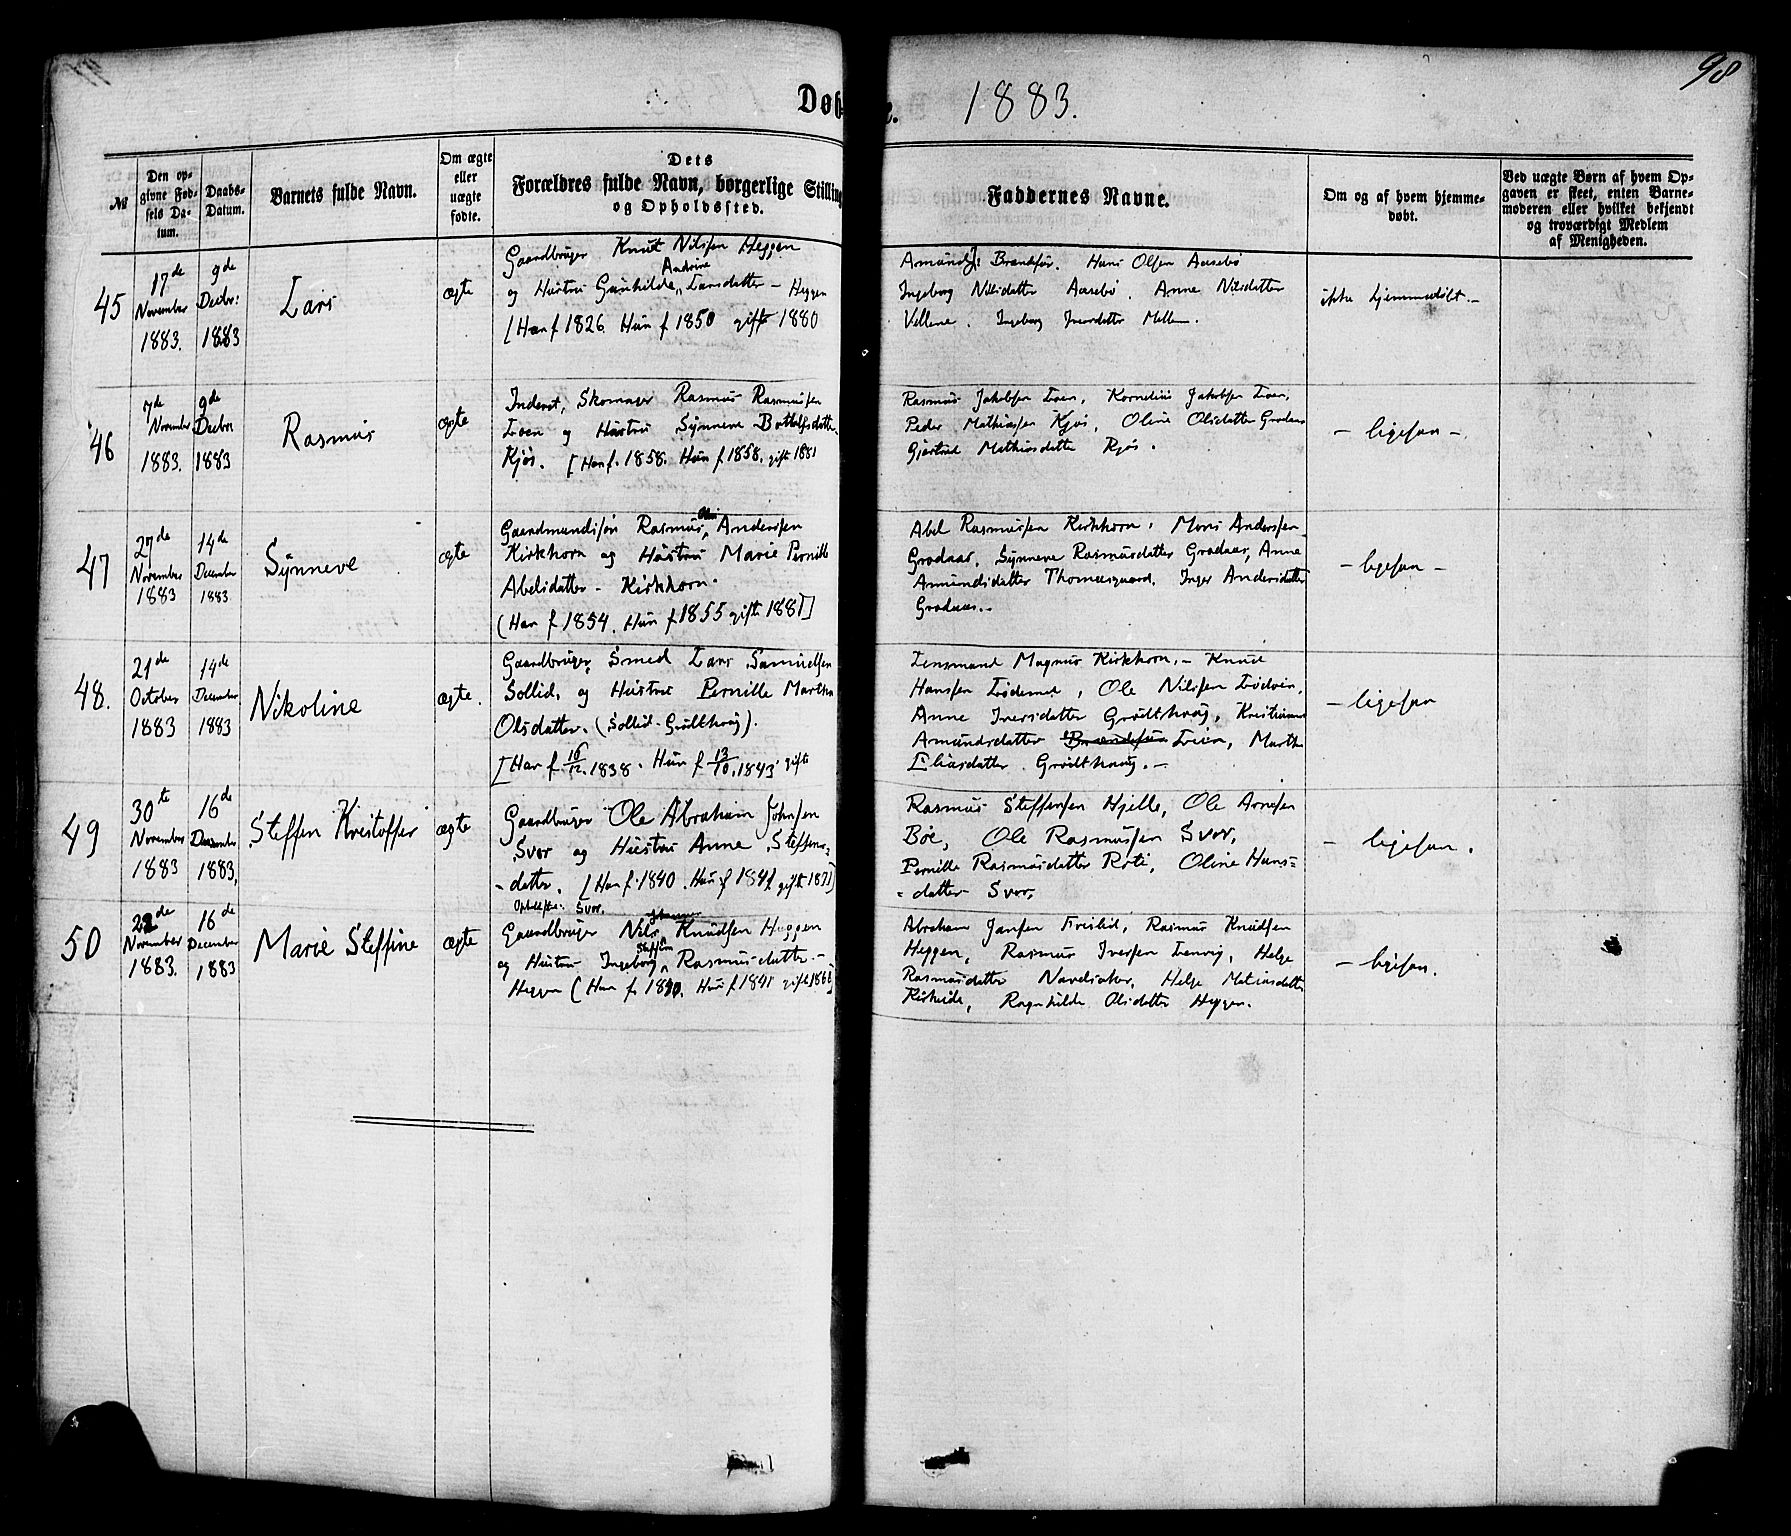 98
Døb e. 1883.
№
Den op-
givne Fød-
sels Da-
tum.
Daabs-
Datum.
Barnets fulde Navn.
Om ægte
eller
uægte
fødte.
Dets
Forældres fulde Navn, borgerlige Stilling
og Opholdssted.
Faddernes Navne.
Om og af hvem hjemme-
døbt.
Ved uægte Børn af hvem Op-
gaven er skeet, enten Barne-
moderen eller hvilket bekjendt
og troværdigt Medlem
af Menigheden.
45
17de
November
1883.
9de
Decbr:
1883
Lars
ægte
Gaardbruger Knut Nilssen Heggen
Andrine
og Hustru Gunhilde Larsdatter - Heggen
[Han f 1826. Hun f 1850 gift 1880
Amund J: Brandsør. Hans Olsen Aasebø
Ingeborg Nilsdatter Aasebø. Anne Nilsdatter
Vellene. Ingeborg Iversdatter Mellem.
ikke hjemmedøbt. -
46
7de
November
1883.
9de
Decbr
1883
Rasmus
ægte
Inderst, Skomager Rasmus Rasmussen
Loen og Hustru Synneve Bottolfsdatter
Kjøs. [Han f. 1858. Hun f. 1858. gift 1881
Rasmus Jakobsen Loen, Kornelius Jakobsen Loen,
Peder Mathiassen Kjøs, Oline Olsdatter Grodaas
Gjertrud Mathiasdatter Kjøs.
- ligesaa -
47
27de
November
1883
14de
December
1883
Synneve
ægte
Gaardmandssøn Rasmus Andersen
Kirkhorn og Hustru Marie Pernille
Abelsdatter - Kirkhorn.
(Han f 1854. Hun f 1855 gift 1881]
Abel Rasmussen Kirkhorn, Mons Anderssen
Grodaas, Synneve Rasmusdatter Grodaas, Anne
Amundsdatter Thomasgaard, Inger Andersdatter
Grodaas. -
- ligesaa -
48.
21de
October
1883
14de
December
1883
Nikoline
ægte.
Gaardbruger, Smed Lars Samuelsen
Sollid, og Hustru Pernille Martha
Olsdatter. (Sollid - Grodthaug).
[Han f 16/12. 1838. Hun f 13/10. 1843. gift
Lensmand Magnus Kirkhorn, - Knut
Hanssen Lødemel, Ole Nilssen Lødøen,
Anne Iversdatter Grodthaug, Kristianne
Amundsdatter Brandsøen Loen, Marthe
Eliasdatter Grodthaug. -
- ligesaa
49
30te
November
1883
16de
December
1883,
Steffen Kristoffer
ægte
Gaardbruger Ole Abraham Johnsen
Svor og Hustru Anne Steffens-
- datter. [Han f. 1840. Hun f 1841 gift 1871]
Opholdssted: Svor.
Rasmus Steffensen Hjelle, Ole Arnesen
Bøe, Ole Rasmussen Svor,
Pernille Rasmusdatter Roti, Oline Hans=
= datter Svor,
- ligesaa.
50
22de
November
1883.
16de
December
1883
Marie Steffine
ægte
Gaardbruger Nils Knudsen Heggen
Steffine
og Hustru Ingeborg Rasmusdatter -
Heggen (Han f. 1840. Hun f 1841 gift 1866]
Abraham Jansen Freslid, Rasmus Knudsen
Heggen, Rasmus Iversen Lenvig, Helge
Rasmusdatter Navelsaker, Helge Matiasdatter
Kirkeide, Ragnhilde Olsdatter Heggen.
- ligesaa.